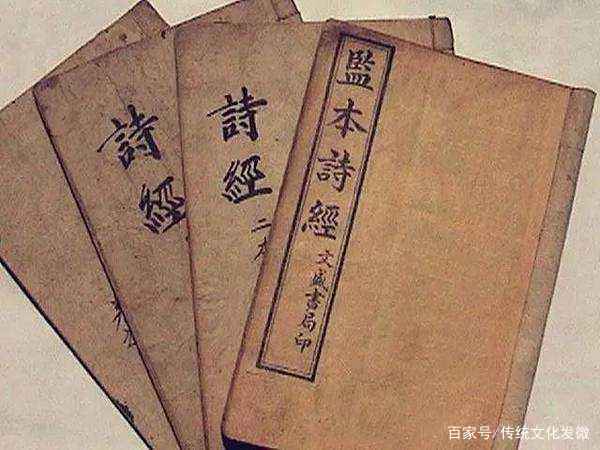 監本詩經
文盛書局印
詩經
二本
詩經
百家号/传统文化发微